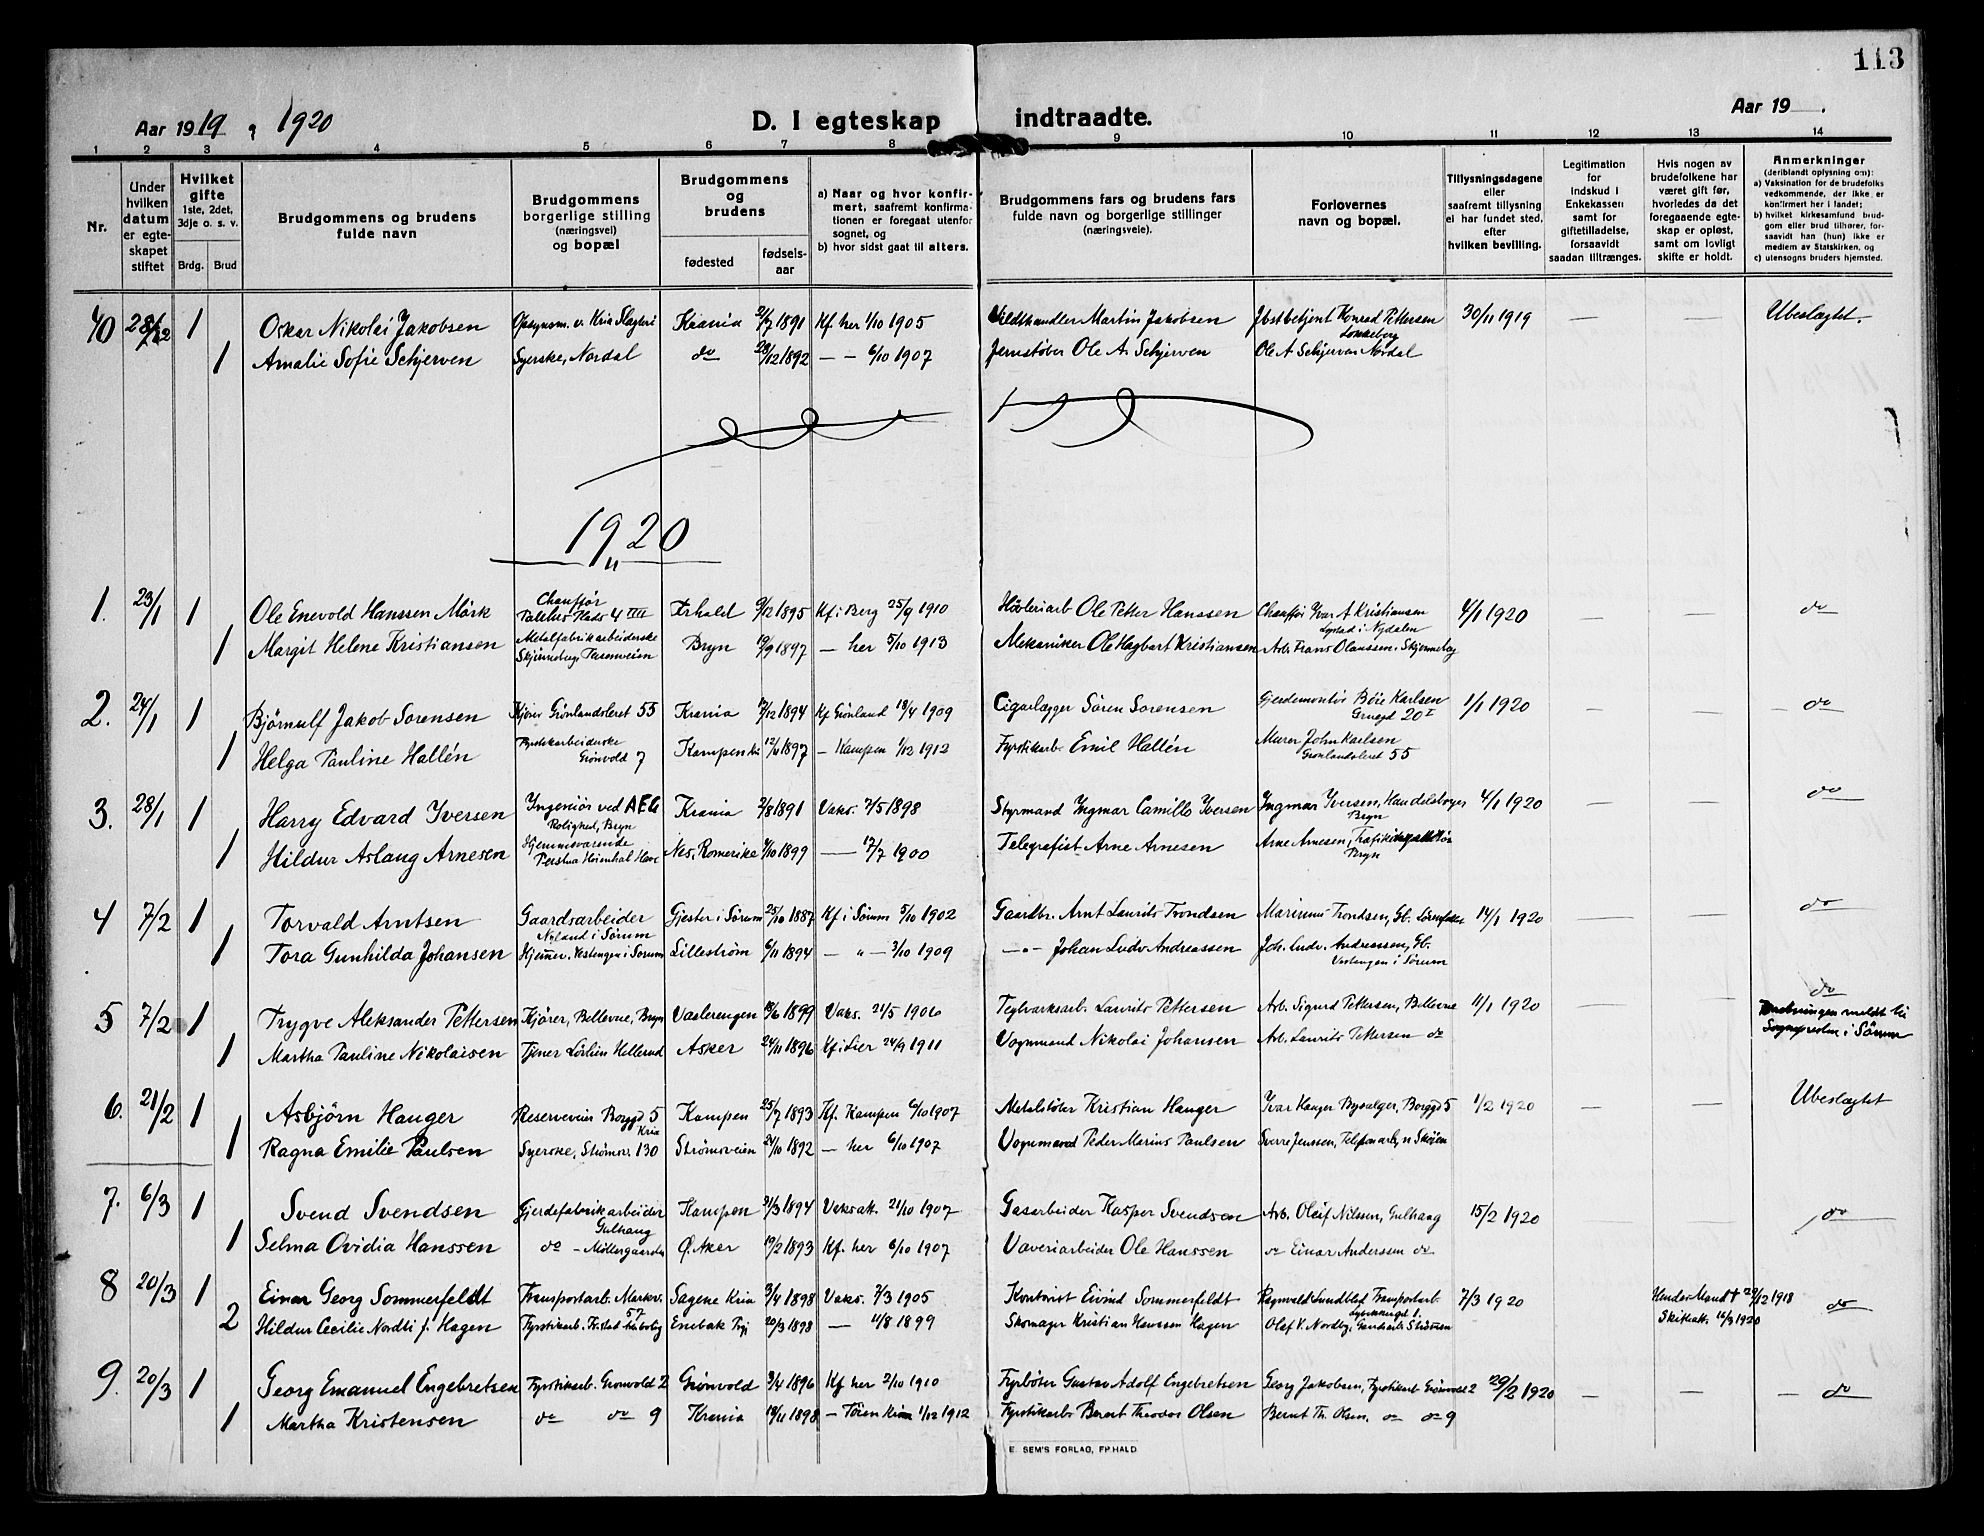 113
Aar 1919 1920 D. I egteskap indtraadte. Aar 19 .
1 2 3 4 5 6 7 8 9 10 11 12 13 14
Nr.
Under hvilken datum er egte-skapet stiftet
Hvilket gifte 1ste, 2det, 3dje o. s. v.
Brdg. Brud
Brudgommens og brudens fulde navn
Brudgommens borgerlige stilling (næringsvei) og bopæl
Brudgommens og brudens
fødested fødsels-aar
a) Naar og hvor konfir-mert, saafremt konfirma-tionen er foregaat utenfor sognet, og
b) hvor sidst gaat til alters.
Brudgommens fars og brudens fars fulde navn og borgerlige stillinger (næringsveie).
Forlovernes navn og bopæl.
Tillysningsdagene eller saafremt tillysning ei har fundet sted, efter hvilken bevilling.
Legitimation for indskud i Enkekassen samt for giftetilladelse, forsaavidt saadan tiltrænges.
Hvis nogen av brudefolkene har været gift før, hvorledes da det foregaaende egte-skap er opløst, samt om lovligt skifte er holdt.
Anmerkninger (deriblandt oplysning om):
a) Vaksination for de brudefolks vedkommende, der ikke er konfirmert her i landet;
b) hvilket kirkesamfund brud-gom eller brud tilhører, for-saavidt han (hun) ikke er medlem av Statskirken, og
c) utensogns bruders hjemsted.
40 28/12 1 Oskar Nikolai Jakobsen Opsynsm. v. Kria Slagteri Krania 2/7 1891 Kf her 1/10 1905 Vedthandler Martin Jakobsen Konrad Pettersen Lokkeberg 30/11 1919 Ubeslegtet.
1 Amalie Sofie Schjerven Syerske, Nordal do 28/12 1892 — — 6/10 1907 Jernstøber Ole A. Schjerven Ole A Schjerven Nordal
1920
1. 23/1 1 Ole Enevold Hanssen Mørk Chauffør 4 IIII Frhald 9/12 1895 Kf i Berg 25/9 1910 Høvleriarb Ole Peter Hanssen Chauffør Ivar A Kristiansen i Nydalen 4/1 1920 — — do
1 Margit Helene Kristiansen Metalfabrikarbeiderske Bryn 19/9 1897 — her 5/10 1913 Mekaniker Ole Hagbart Kristiansen Arb. Frans Olaussen
2. 24/1 1 Bjørnulf Jakob Sorensen Kjører Grønlandsleret 55 Krania 17/12 1894 Kf Grønland 18/4 1909 Cigarlægger Søren Sorensen Gjerdemontør Bôie Karlsen 20 I 1/1 1920 — — do
1 Helga Pauline Hallén Fyrstikarbeiderske Grønvold 7 Kampen 12/6 1897 — Kampen 1/12 1912 Fyrstikarb. Emil Hallén Murer John Karlsen Grønlandsleret 55
3. 28/1 1 Harry Edvard Iversen Ingeniør ved AEG Rolighed, Bryn Krania 2/8 1891 Vaks. 7/5 1898 Styrmand Ingmar Camillo Iversen Ingmar Iversen, Handelsborger Bryn 4/1 1920 — — do
1 Hildur Aslaug Arnesen Hjemmeværende Nes, Romerike 7/10 1899 — 17/7 1900 Telegrafist Arne Arnesen Arne Arnesen, Bryn
4 7/2 1 Torvald Arntsen Gaardsarbeider Nyland i Sørum Gjester i Sørum 25/10 1887 Kf i Sørum 5/10 1902 Gaardbr. Arnt Laurits Trondsen Marinus Trondsen, Gb. 14/1 1920 — — do
1 Tora Gunhilda Johansen Hjemmev. Vestengen i Sørum Lillestrøm 6/11 1894 — " — 3/10 1909 —"— Johan Ludv Andreassen Joh. Ludv. Andreassen, Gb. Vestengen i Sørum
5 7/2 1 Trygve Aleksander Pettersen Kjører, Bellevue, Bryn Vaalerengen 18/6 1899 Vaks. 21/5 1906 Teglverksarb. Laurits Pettersen Arb. Sigurd Pettersen, Bellevue 11/1 1920 — — do
meldt til Sognepresten i Sørum
1 Martha Pauline Nikolaisen Tjener Hellerud Asker 24/11 1896 Kf i Lier 24/9 1911 Vognmand Nikolai Johansen Arb. Laurits Pettersen do
6. 21/2 1 Asbjørn Hauger Reserveveier Borggd 5 Kria Kampen 25/7 1893 Kf. Kampen 6/10 1907 Metalstøber Kristian Hauger Ivar Hauger Bysælger, Borggd 5 1/2 1920 — — Ubeslegtet
1 Ragna Emilie Paulsen Syerske, Strømsv. 130 Strømsveien 24/10 1892 — her 6/10 1907 Vognmand Peder Marius Paulsen Sverre Jenssen, Telefonarb. Skøien
7. 6/3 1 Svend Svendsen Gjerdefabrikarbeider Gulhaug Kampen 21/3 1894 Vaksat. 21/10 1907 Gasarbeider Kasper Svendsen Arb. Oleif Nilssen, Gulhaug 15/2 1920 — — do
1 Selma Ovidia Hanssen do - Møllergaarden Ø. Aker 19/2 1893 Kf. her 6/10 1907 Væveriarbeider Ole Hanssen do Einar Anderssen do
8 20/3 1 Einar Georg Sommerfeldt Transportarb. Markv. 57 Sagene Kria 3/4 1898 Vaks. 7/3 1905 Kontorist Eivind Sommerfeldt Ragnvald Lundblad Transportarb. 7/3 1920 Hendes Mand † 27/12 1918 do
2 Hildur Cecilie Nordli f. Hagen Fyrstikarb. Enebak 20/3 1898 — 11/8 1899 Skomager Kristian Hanssen Hagen Olaf V. Nordby, Skifteatt. 16/3 1920
9. 20/3 1 Georg Emanuel Engebretsen Fyrstikarb. Grønvold 2 Grønvold 3/4 1896 Kf her 2/10 1910 Fyrbøter Gustav Adolf Engebretsen Georg Jakobsen, Fyrstikarb Grønvold 2 29/2 1920 — — do
1 Martha Kristensen do do 9 Krania 19/11 1898 — Tøien 1/12 1912 Fyrstikarb. Bernt Theodor Olsen Bernt Th. Olsen. do do 9
E. SEM'S FORLAG, FR.HALD